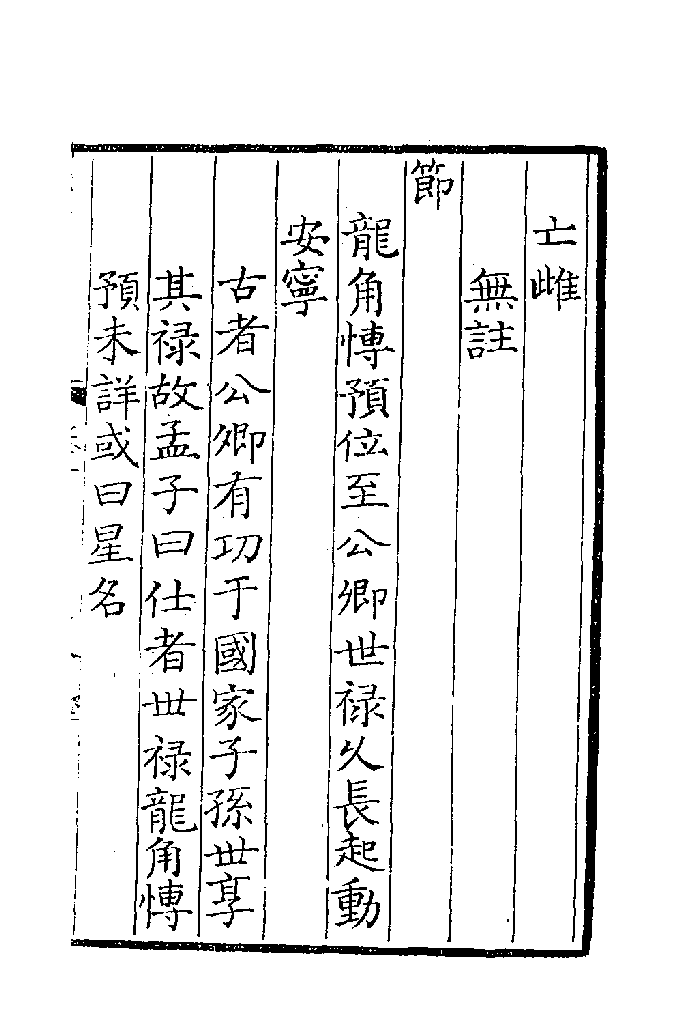 亡雌
無註
節
龍角愽預位至公卿世禄久長起動
安寧
古者公卿有功于國家子孫世享
其禄故孟子曰仕者世禄龍角愽
預未詳或曰星名